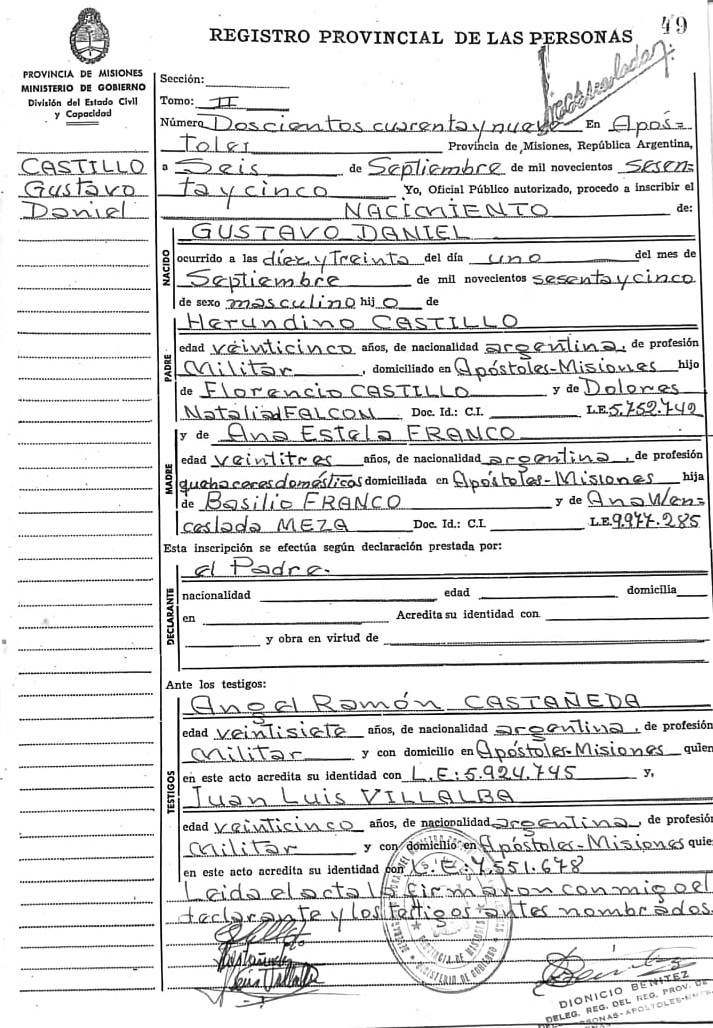 49
REGISTRO PROVINCIAL DE LAS PERSONAS
PROVINCIA DE MISIONES
MINISTERIO DE GOBIERNO
División del Estado Civil
y Capacidad
CASTILLO
Gustavo
Daniel
Sección:
Tomo: II
Número Doscientos cuarenta y nueve En Após=
toles Provincia de Misiones, República Argentina,
a Seis de Septiembre de mil novecientos sesen=
ta y cinco Yo, Oficial Público autorizado, procedo a inscribir el
NACIMIENTO de:
NACIDO
GUSTAVO DANIEL
ocurrido a las diez y Treinta del día uno del mes de
Septiembre de mil novecientos sesenta y cinco
de sexo masculino hijo de
PADRE
Herundino CASTILLO
edad veinticinco años, de nacionalidad argentina, de profesión
Militar, domiciliado en Apóstoles-Misiones hijo
de Florencio CASTILLO y de Dolores
Natalia FALCON Doc. Id.: C.I. L.E. 5.752.742
MADRE
y de Ana Estela FRANCO
edad veintitres años, de nacionalidad argentina, de profesión
quehaceres domésticos domiciliada en Apóstoles-Misiones hija
de Basilio FRANCO y de Ana Wen=
ceslada MEZA Doc. Id.: C.I. L.E. 9.977.285
Esta inscripción se efectúa según declaración prestada por:
DECLARANTE
el Padre.
nacionalidad edad domicilia
en Acredita su identidad con
y obra en virtud de
Ante los testigos:
TESTIGOS
Angel Ramón CASTAÑEDA
edad veintisiete años, de nacionalidad argentina, de profesión
Militar y con domicilio en Apóstoles-Misiones quien
en este acto acredita su identidad con L.E: 5.924.745 y,
Juan Luis VILLALBA
edad veinticinco años, de nacionalidad argentina, de profesión
Militar y con domicilio en Apóstoles-Misiones quie
en este acto acredita su identidad con L.E: 7.551.678
Leida el acta la firmaron conmigo el
declarante y los testigos antes nombrados.
PROVINCIA DE MISIONES
MINISTERIO DE GOBIERNO
DIONICIO BENITEZ
DELEG. REG. DEL REG. PROV. DE